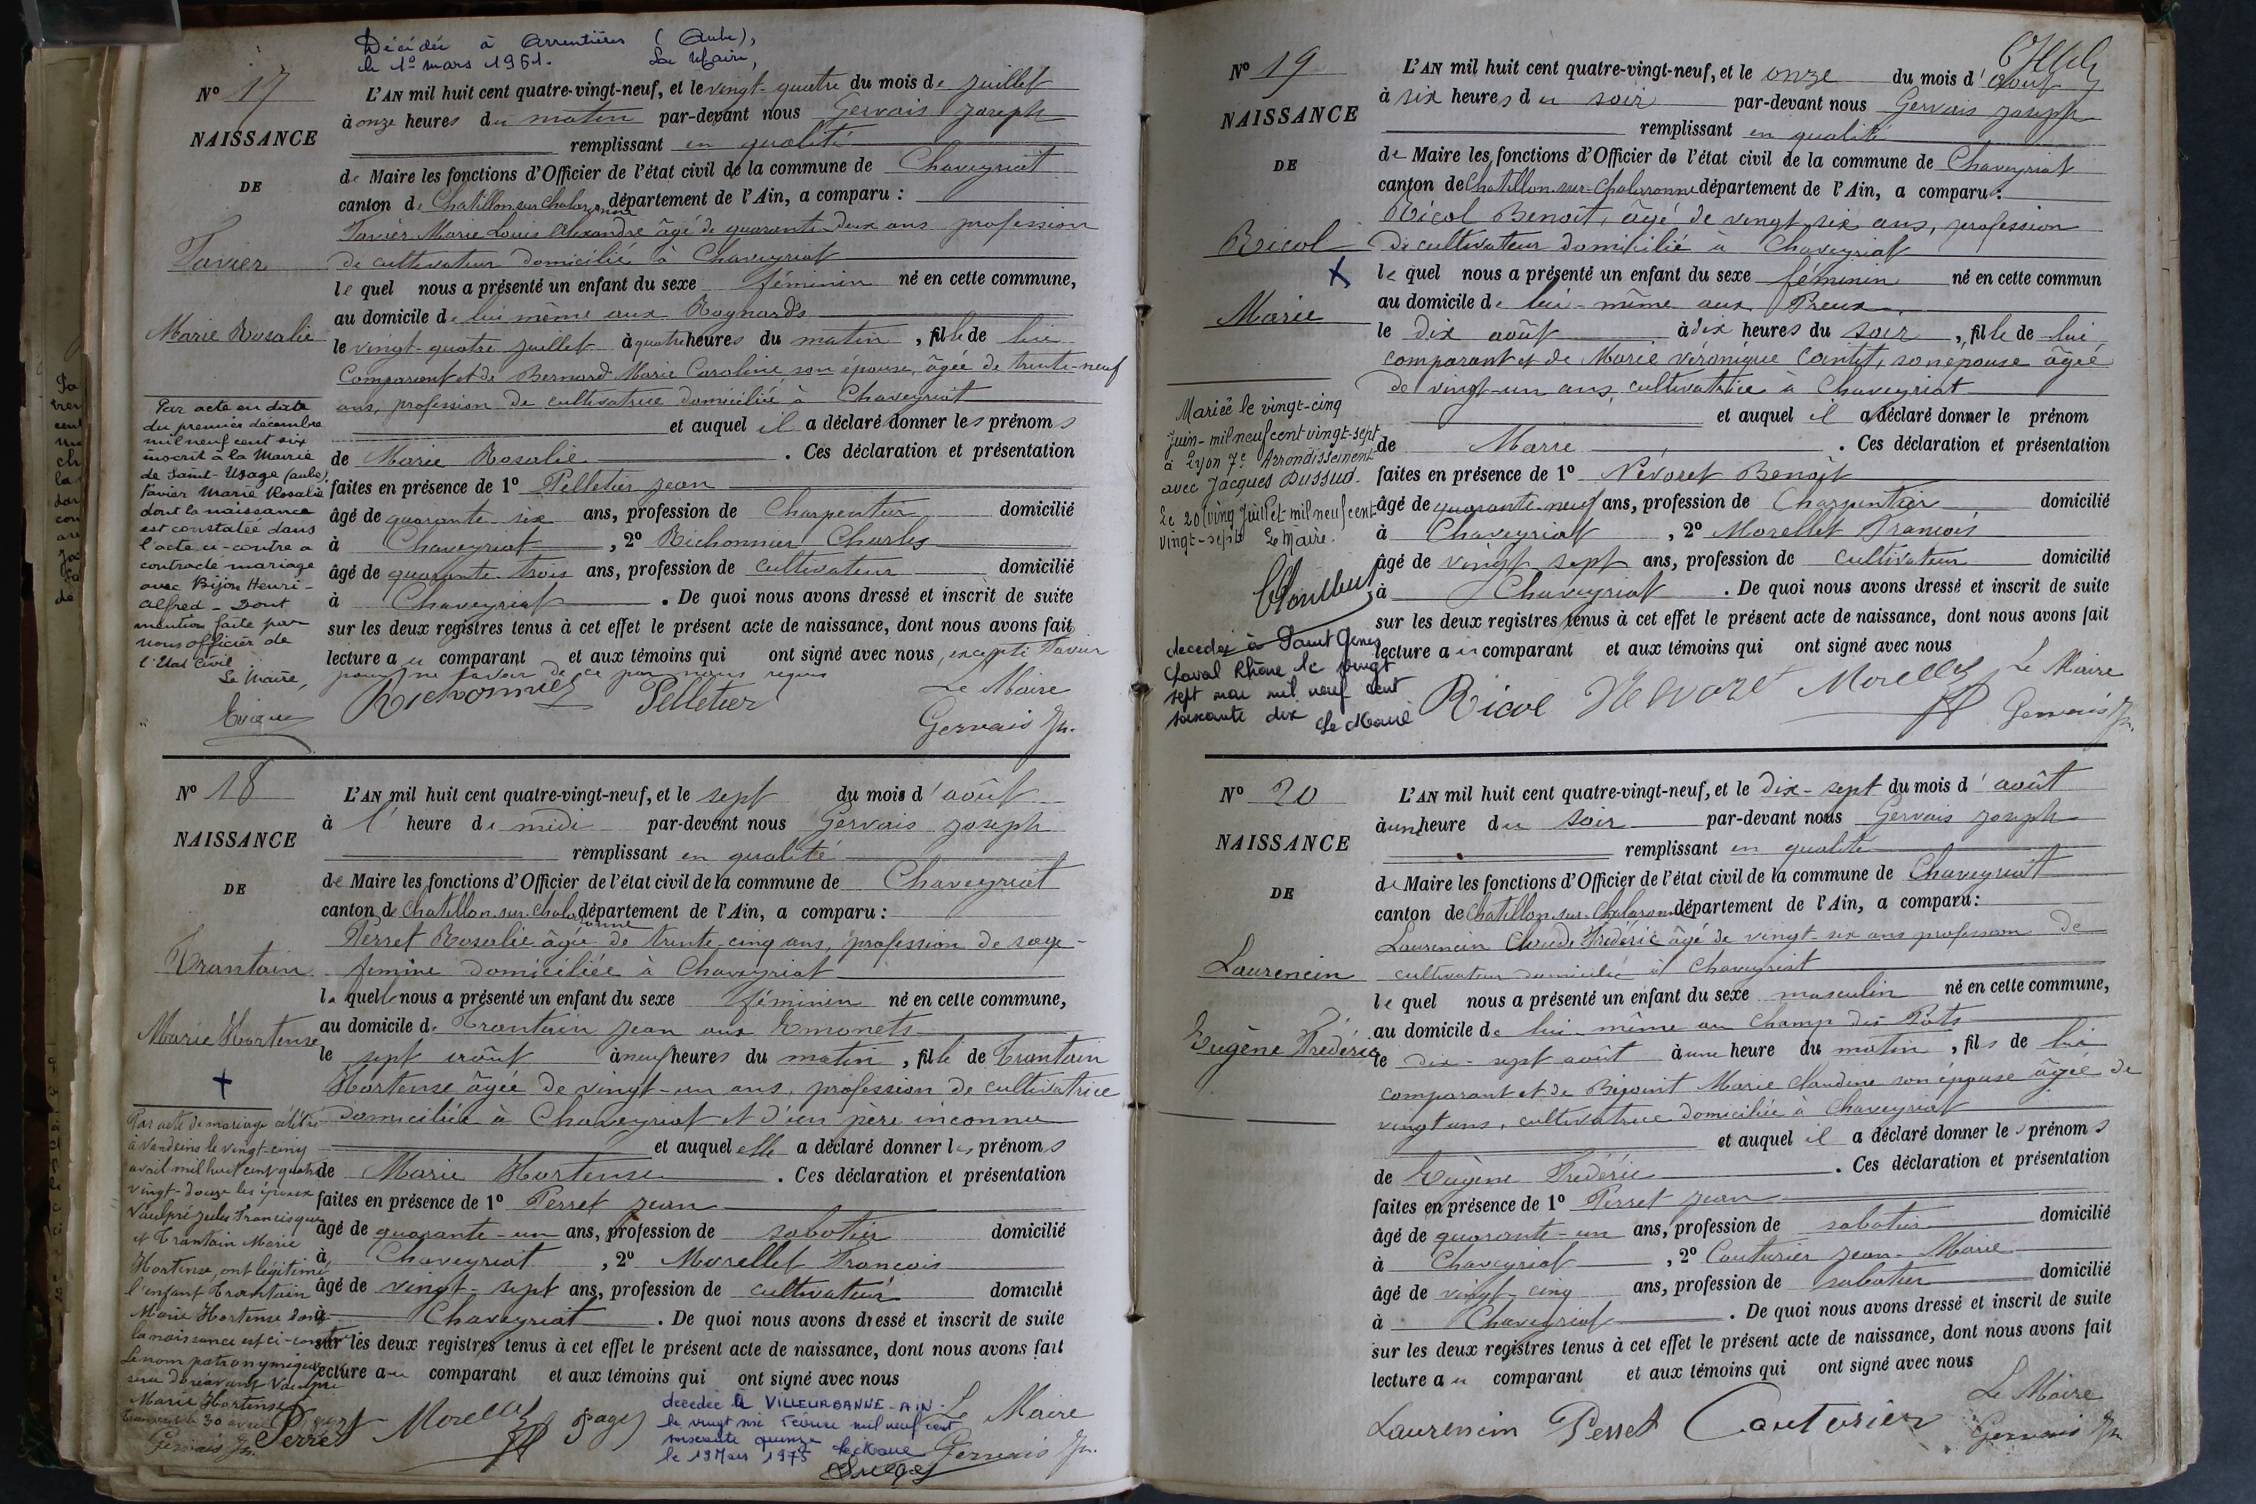 Décédée à Arrentières (Aube),
le 1er mars 1961. Le Maire,
N° 17
NAISSANCE
DE
Tavier
Marie Rosalie
Par acte en date
du premier décembre
mil neuf cent six
inscrit à la Mairie
de Saint-Usage (aube),
Tavier Marie Rosalie
dont la naissance
est constatée dans
l'acte ci-contre a
contracté mariage
avec Bijon Henri-
Alfred - Dont
mention faite par
nous officier de
l'Etat Civil
Le Maire,
L'AN mil huit cent quatre-vingt-neuf, et le vingt-quatre du mois de juillet
à onze heures du matin par-devant nous Gervais Joseph
remplissant en qualité
de Maire les fonctions d'Officier de l'état civil de la commune de Chaveyriat
canton de Chatillon sur Chalaronne département de l'Ain, a comparu :
Tavier Marie Louis Alexandre âgé de quarante-deux ans profession
de cultivateur domicilié à Chaveyriat
lequel nous a présenté un enfant du sexe féminin né en cette commune,
au domicile de lui même aux Roynards
le vingt-quatre juillet à quatre heures du matin, fille de lui
Comparant et de Bernard Marie Caroline, son épouse, âgée de trente-neuf
ans, profession de cultivatrice domiciliée à Chaveyriat
et auquel il a déclaré donner les prénoms
de Marie Rosalie. Ces déclaration et présentation
faites en présence de 1° Pelletier Jean
âgé de quarante-six ans, profession de Charpentier domicilié
à Chaveyriat, 2° Richonnier Charles
âgé de quarante-trois ans, profession de cultivateur domicilié
à Chaveyriat. De quoi nous avons dressé et inscrit de suite
sur les deux registres tenus à cet effet le présent acte de naissance, dont nous avons fait
lecture au comparant et aux témoins qui ont signé avec nous, excepté Tavier
pour ne savoir de ce par nous requis
Richonnier Pelletier Le Maire
Gervais Jh.
N° 18
NAISSANCE
DE
Trantain
Marie Hortense
Par acte de mariage célébré
à Vandeins le vingt-cinq
avril mil huit cent quatre
vingt-douze les époux
Vaupré Jules Francisque
et Trantain Marie
Hortense, ont légitimé
l'enfant Trantain
Marie Hortense dont
la naissance est ci-contre
Le nom patronymique
sera dorénavant Vaupré
Marie Hortense
30 avril
Gervais Jh.
L'AN mil huit cent quatre-vingt-neuf, et le sept du mois d'août
à l'heure de midi par-devant nous Gervais Joseph
remplissant en qualité
de Maire les fonctions d'Officier de l'état civil de la commune de Chaveyriat
canton de Chatillon-sur-Chalaronne département de l'Ain, a comparu :
Perret Rosalie âgée de trente-cinq ans, profession de sage-
femme domiciliée à Chaveyriat
laquelle nous a présenté un enfant du sexe féminin né en cette commune,
au domicile de Trantain Jean aux Emonets
le sept août à neuf heures du matin, fille de Trantain
Hortense âgée de vingt-un ans, profession de cultivatrice
domiciliée à Chaveyriat et d'un père inconnu
et auquel elle a déclaré donner les prénoms
de Marie Hortense. Ces déclaration et présentation
faites en présence de 1° Perret Jean
âgé de quarante-un ans, profession de sabotier domicilié
à Chaveyriat, 2° Morellet François
âgé de vingt-sept ans, profession de cultivateur domicilié
à Chaveyriat. De quoi nous avons dressé et inscrit de suite
sur les deux registres tenus à cet effet le présent acte de naissance, dont nous avons fait
lecture au comparant et aux témoins qui ont signé avec nous
Perret Morellet Le Maire
Gervais Jh.
décédée à VILLEURBANNE-AIN-
le vingt six février mil neuf cent
soixante quinze Le Maire
le 19 Mars 1975
N° 19
NAISSANCE
DE
Ricol
Marie
Mariée le vingt-cinq
Juin-mil neuf cent vingt-sept
à Lyon 7e Arrondissement
avec Jacques Dussud.
Le 20 (vingt) Juillet mil neuf cent-
vingt-sept Le Maire.
décédée à Saint Genis
Laval Rhône le vingt
sept mai mil neuf cent
soixante dix Le Maire
L'AN mil huit cent quatre-vingt-neuf, et le onze du mois d'août
à six heures du soir par-devant nous Gervais Joseph
remplissant en qualité
de Maire les fonctions d'Officier de l'état civil de la commune de Chaveyriat
canton de Chatillon-sur-Chalaronne département de l'Ain, a comparu :
Ricol Benoît, âgé de vingt-six ans, profession
de cultivateur domicilié à Chaveyriat
lequel nous a présenté un enfant du sexe féminin né en cette commun
au domicile de lui-même aux Preux
le dix août à dix heures du soir, fille de lui
comparant et de Marie Véronique Contet, son épouse âgée
de vingt-un ans, cultivatrice à Chaveyriat
et auquel il a déclaré donner le prénom
de Marie. Ces déclaration et présentation
faites en présence de 1° Névoret Benoît
âgé de quarante-neuf ans, profession de Charpentier domicilié
à Chaveyriat, 2° Morellet François
âgé de vingt-sept ans, profession de cultivateur domicilié
à Chaveyriat. De quoi nous avons dressé et inscrit de suite
sur les deux registres tenus à cet effet le présent acte de naissance, dont nous avons fait
lecture au comparant et aux témoins qui ont signé avec nous
Ricol Nevoret Morellet Le Maire
Gervais Jh.
N° 20
NAISSANCE
DE
Laurencin
Eugène Frédéric
L'AN mil huit cent quatre-vingt-neuf, et le dix-sept du mois d'août
à une heure du soir par-devant nous Gervais Joseph
remplissant en qualité
de Maire les fonctions d'Officier de l'état civil de la commune de Chaveyriat
canton de Chatillon-sur-Chalaronne département de l'Ain, a comparu :
Laurencin Claude Frédéric âgé de vingt-six ans profession de
cultivateur domicilié à Chaveyriat
lequel nous a présenté un enfant du sexe masculin né en cette commune,
au domicile de lui-même au Champ des Pots
le dix-sept août à une heure du matin, fils de lui
comparant et de Bizouit Marie Claudine son épouse âgée de
vingt ans, cultivatrice domiciliée à Chaveyriat
et auquel il a déclaré donner les prénoms
de Eugène Frédéric. Ces déclaration et présentation
faites en présence de 1° Perret Jean
âgé de quarante-un ans, profession de sabotier domicilié
à Chaveyriat, 2° Couturier Jean-Marie
âgé de vingt-cinq ans, profession de sabotier domicilié
à Chaveyriat. De quoi nous avons dressé et inscrit de suite
sur les deux registres tenus à cet effet le présent acte de naissance, dont nous avons fait
lecture au comparant et aux témoins qui ont signé avec nous
Laurencin Perret Couturier Le Maire
Gervais Jh